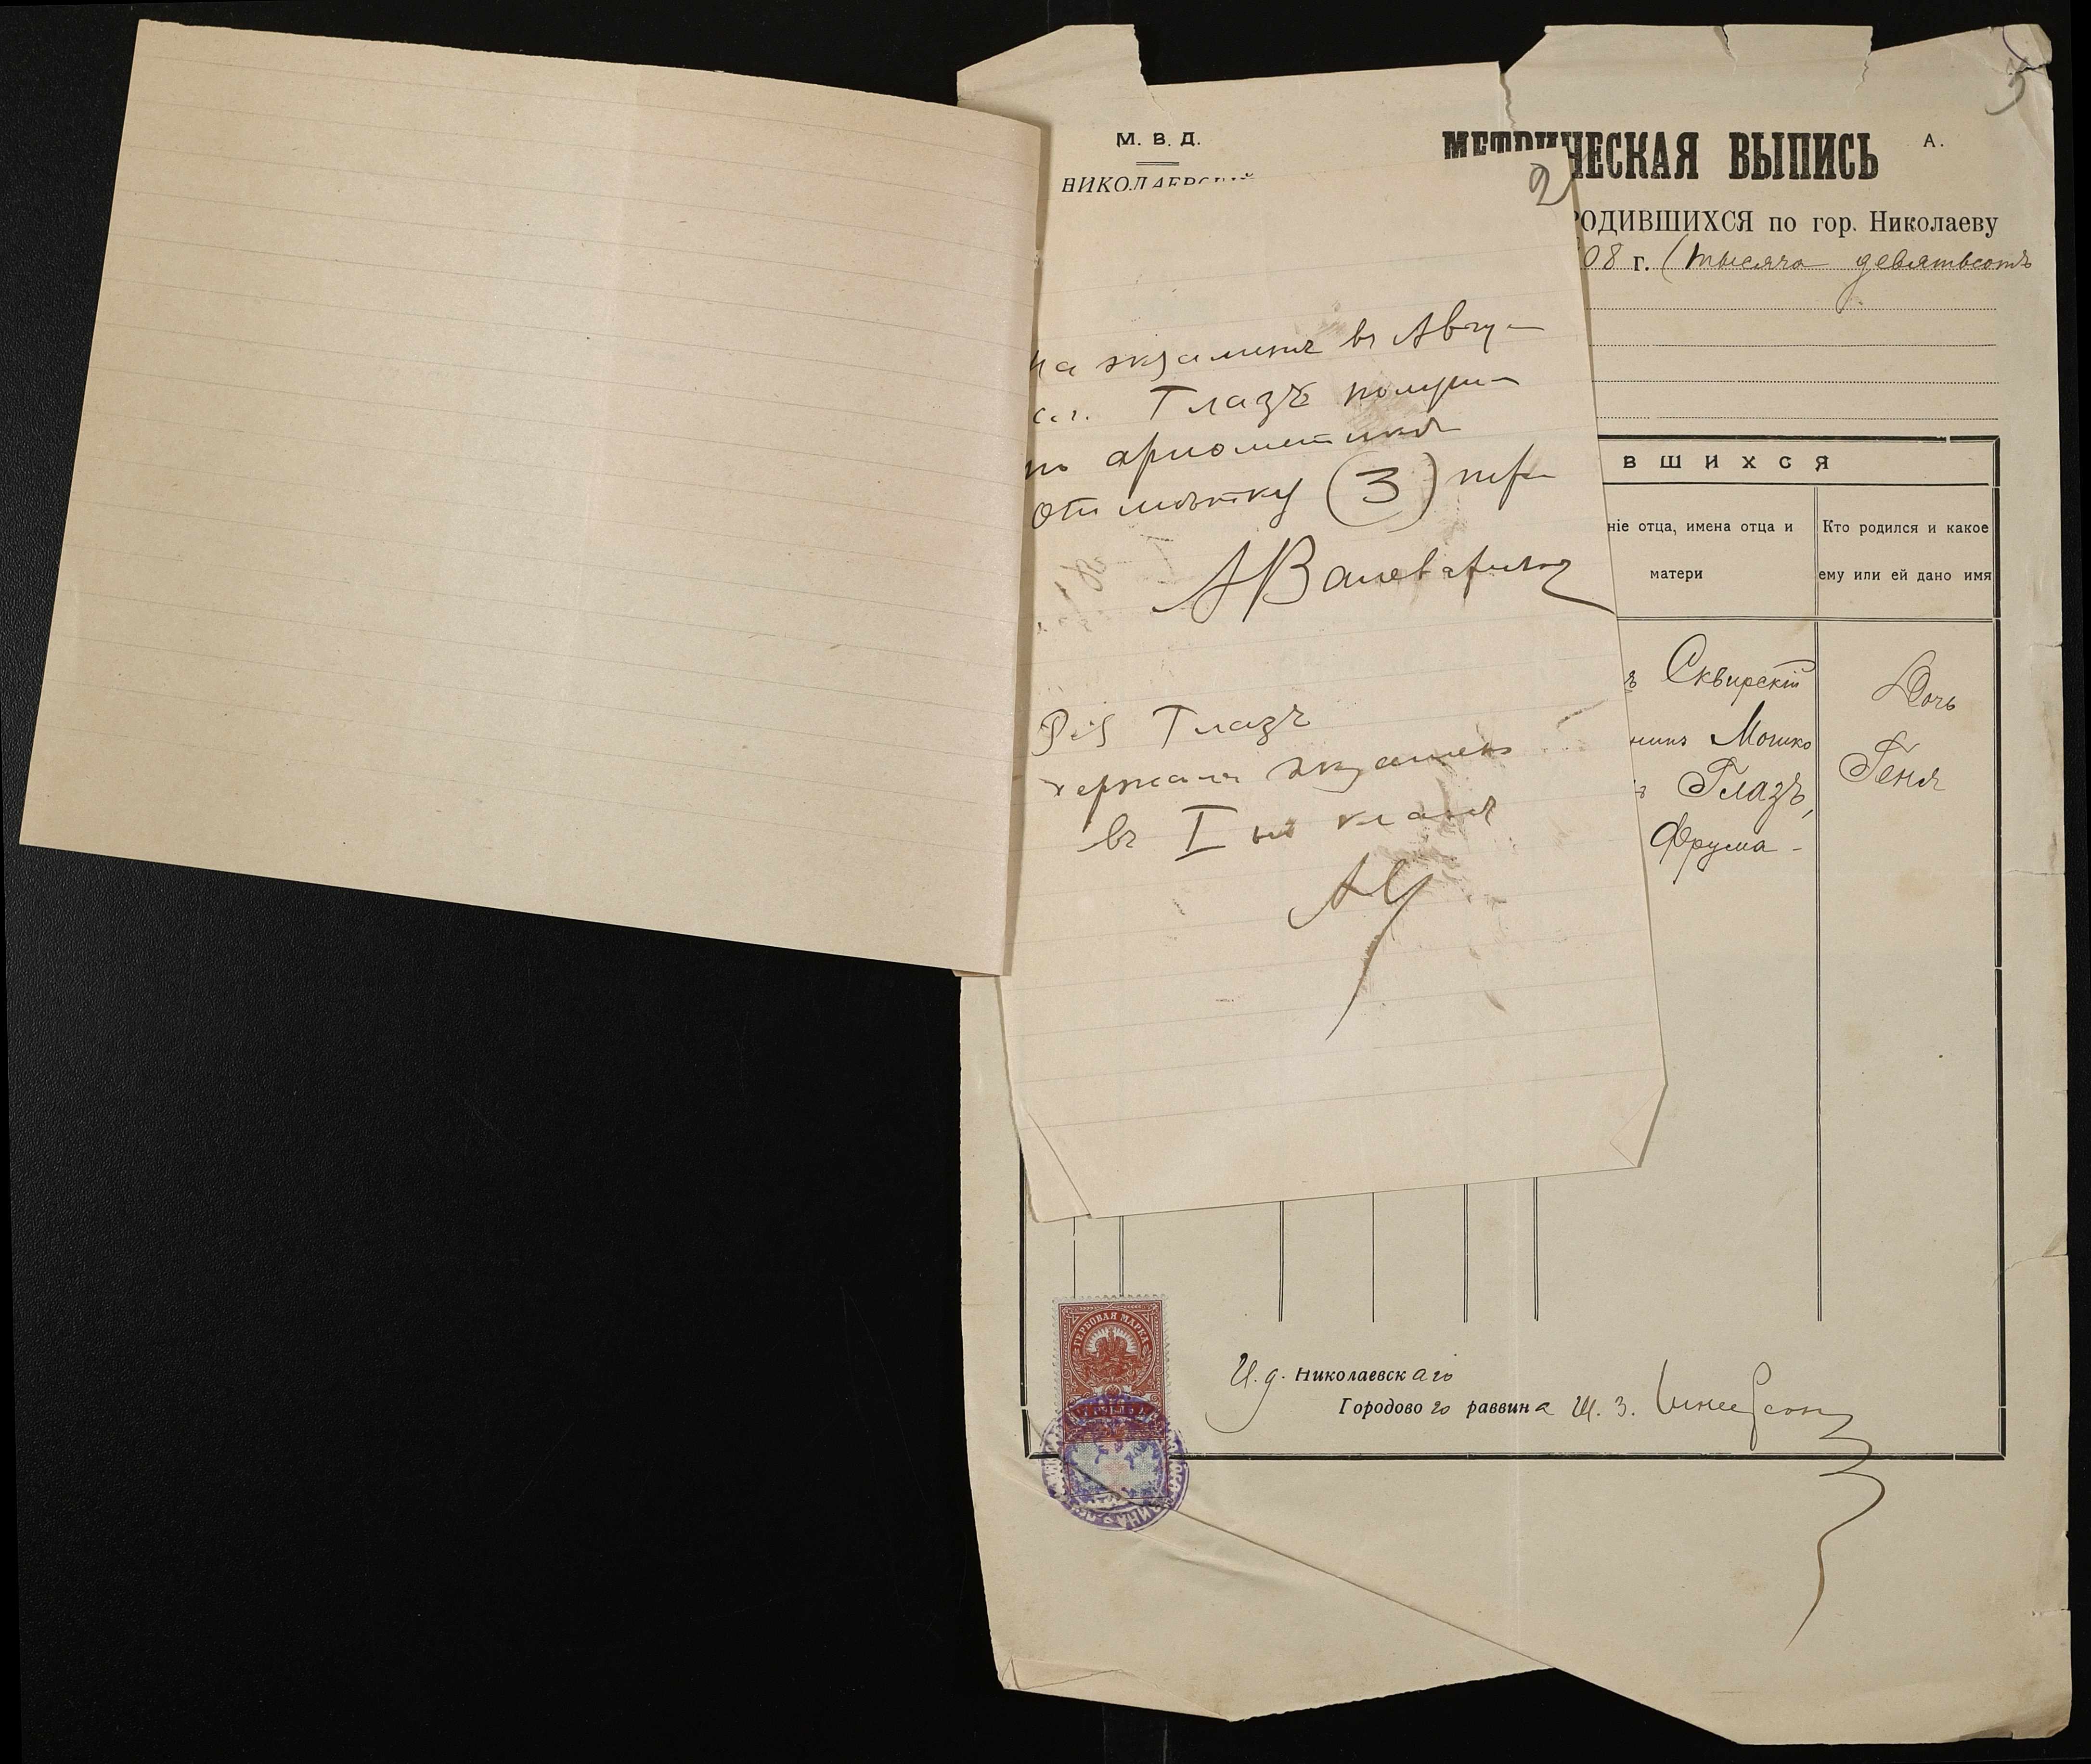 М. В. Д.
НИКОЛАЕВСКІЙ
МЕТРИЧЕСКАЯ ВЫПИСЬ
А.
2
РОДИВШИХСЯ по гор. Николаеву
08 г. (тысяча девятьсотъ
на экзаменѣ въ Авгу-
с.г. Глазъ получи-
по ариѳметикѣ
отмѣтку (3) три
Рія Глазъ
держала экзаменъ
въ I ый классъ
ВШИХСЯ
ніе отца, имена отца и
матери
Кто родился и какое
ему или ей дано имя
ъ Сквирскій
нинъ Мошко
ъ Глазъ,
Фрума -
Дочь
Геня
ГЕРБОВАЯ МАРКА
И. д. Николаевскаго
Городового раввина Ш. З.